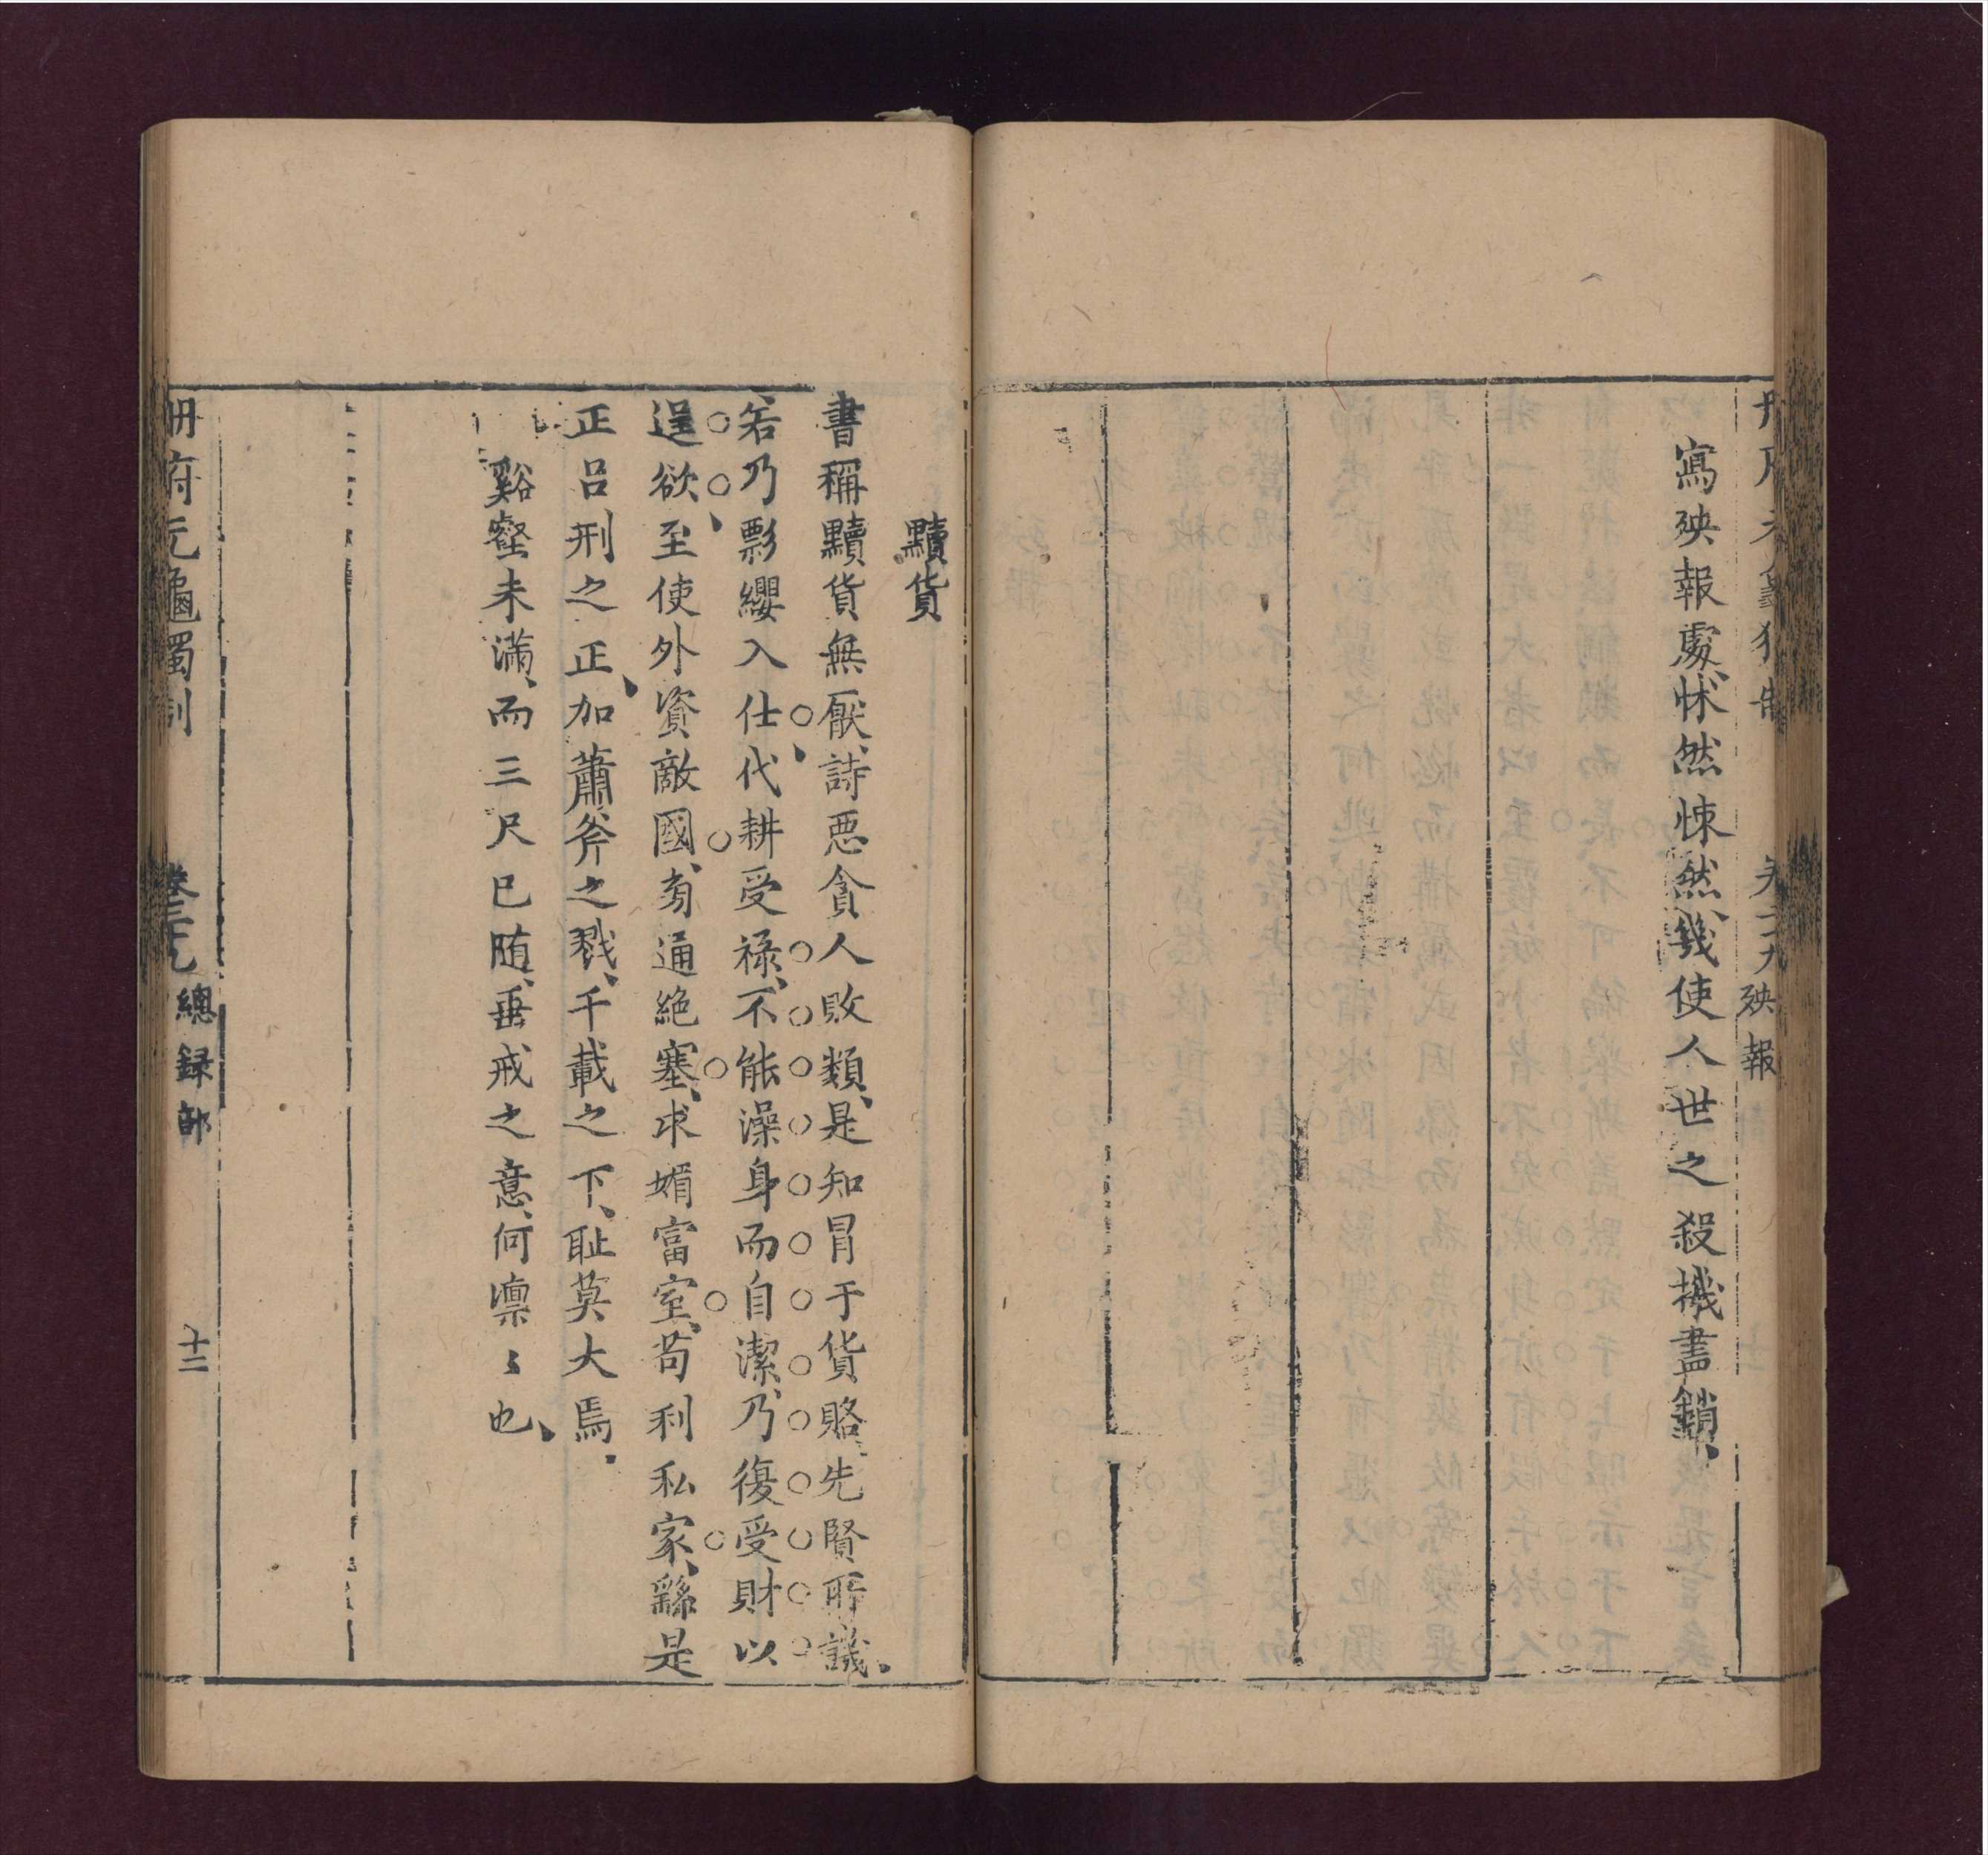 寫殃報處怵然悚然幾使人世之殺機盡鎖
殃報
黷貨
書稱黷貨無厭詩惡貪人敗類是知冒于貨賂先賢所譏
若乃影纓入仕代耕受祿不能澡身而自潔乃復受財以
逞欲至使外資敵國旁通絶塞求媚富室苟利私家繇是
正呂刑之正加蕭斧之戮千載之下耻莫大焉
谿壑未滿而三尺已随垂戒之意何凛〻也
冊府元龜獨制 卷二十九 總録部 十二